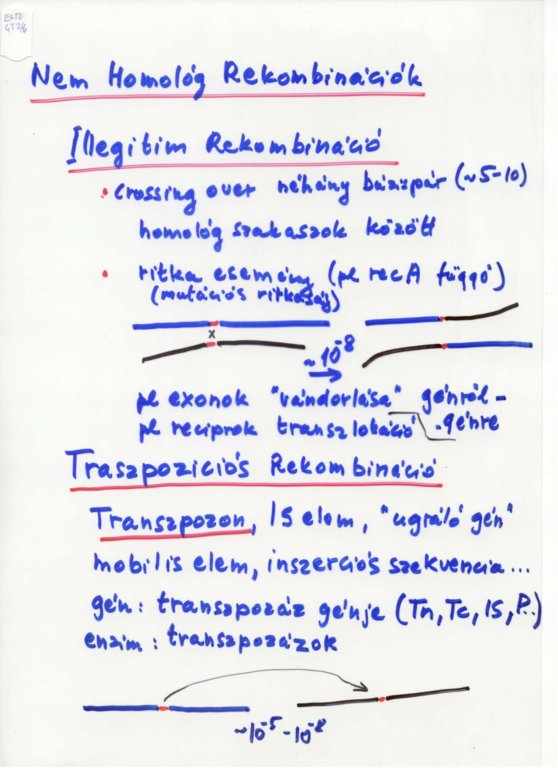 ELTE
GT 2/6
Nem Homológ Rekombinációk
Illegitim Rekombináció
• crossing over néhány bázispár (~5-10)
homológ szakaszok között
• ritka esemény (pl recA függő)
(mutációs ritkaság)
x
~10⁻⁸
pl exonok "vándorlása" génről-
pl reciprok transzlokáció -génre
Traszpoziciós Rekombináció
Transzpozon, IS elem, "ugráló gén"
mobilis elem, inszerciós szekvencia...
gén: transzpozáz génje (Tn, Tc, IS, P..)
enzim: transzpozázok
~10⁻⁵-10⁻⁸